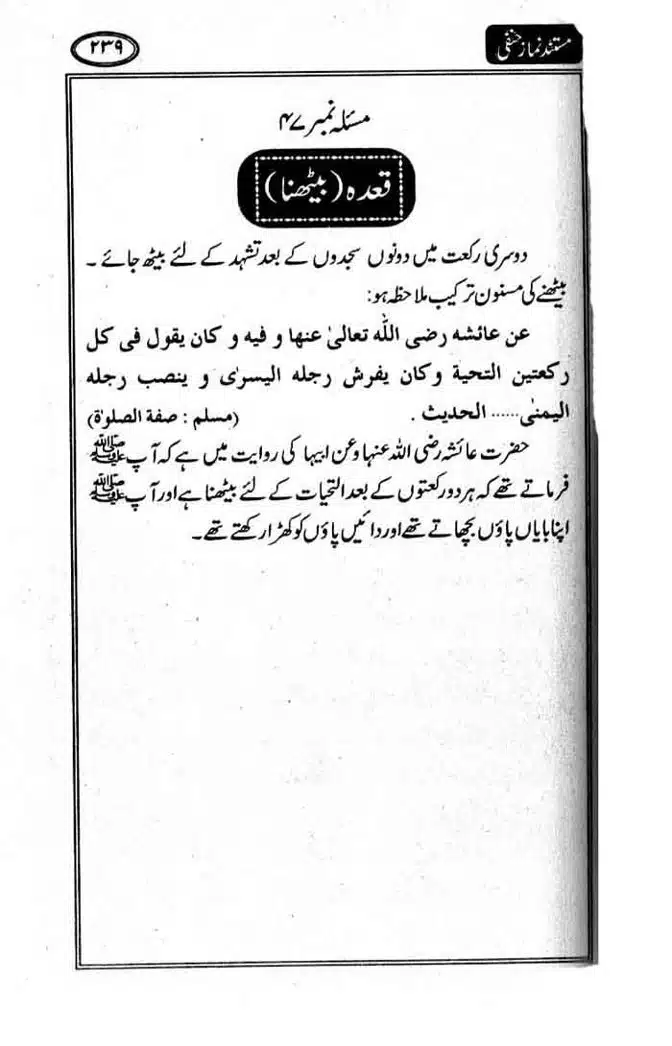 مستند نماز حنفی
۲۳۹
مسئلہ نمبر ۴۷
قعدہ (بیٹھنا)
دوسری رکعت میں دونوں سجدوں کے بعد تشہد کے لئے بیٹھ جائے ۔
بیٹھنے کی مسنون ترکیب ملاحظہ ہو:
عن عائشه رضی الله تعالیٰ عنها و فیه و کان یقول فی کل
رکعتین التحیة وکان یفرش رجله الیسریٰ و ینصب رجله
الیمنٰی...... الحدیث . (مسلم : صفة الصلوٰة)
حضرت عائشہ رضی اللہ عنہا وعن ابیہا کی روایت میں ہے کہ آپ ﷺ
فرماتے تھے کہ ہر دو رکعتوں کے بعد التحیات کے لئے بیٹھنا ہے اور آپ ﷺ
اپنا بایاں پاؤں بچھاتے تھے اور دائیں پاؤں کو کھڑا رکھتے تھے ۔